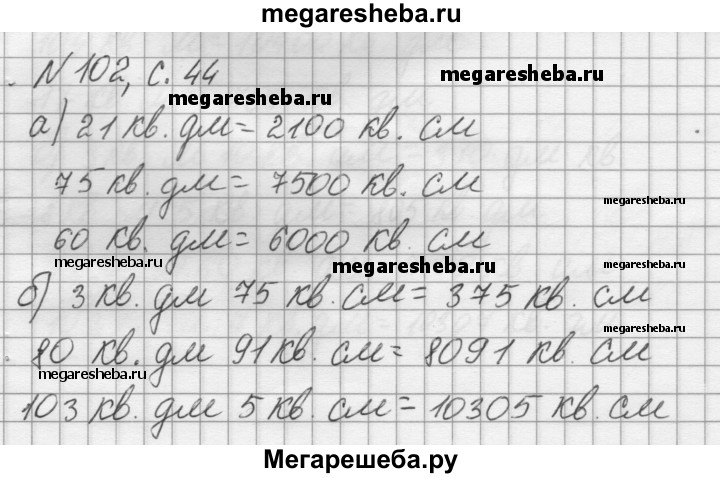 megaresheba.ru
N 102, с. 44
megaresheba.ru
megaresheba.ru
а) 21 кв. дм = 2100 кв. см
75 кв. дм = 7500 кв. см
megaresheba.ru
60 кв. дм = 6000 кв. см
megaresheba.ru
megaresheba.ru
б) 3 кв. дм 75 кв. см = 375 кв. см
megaresheba.ru
80 кв. дм 91 кв. см = 8091 кв. см
megaresheba.ru
103 кв. дм 5 кв. см = 10305 кв. см
Мегарешеба.ру